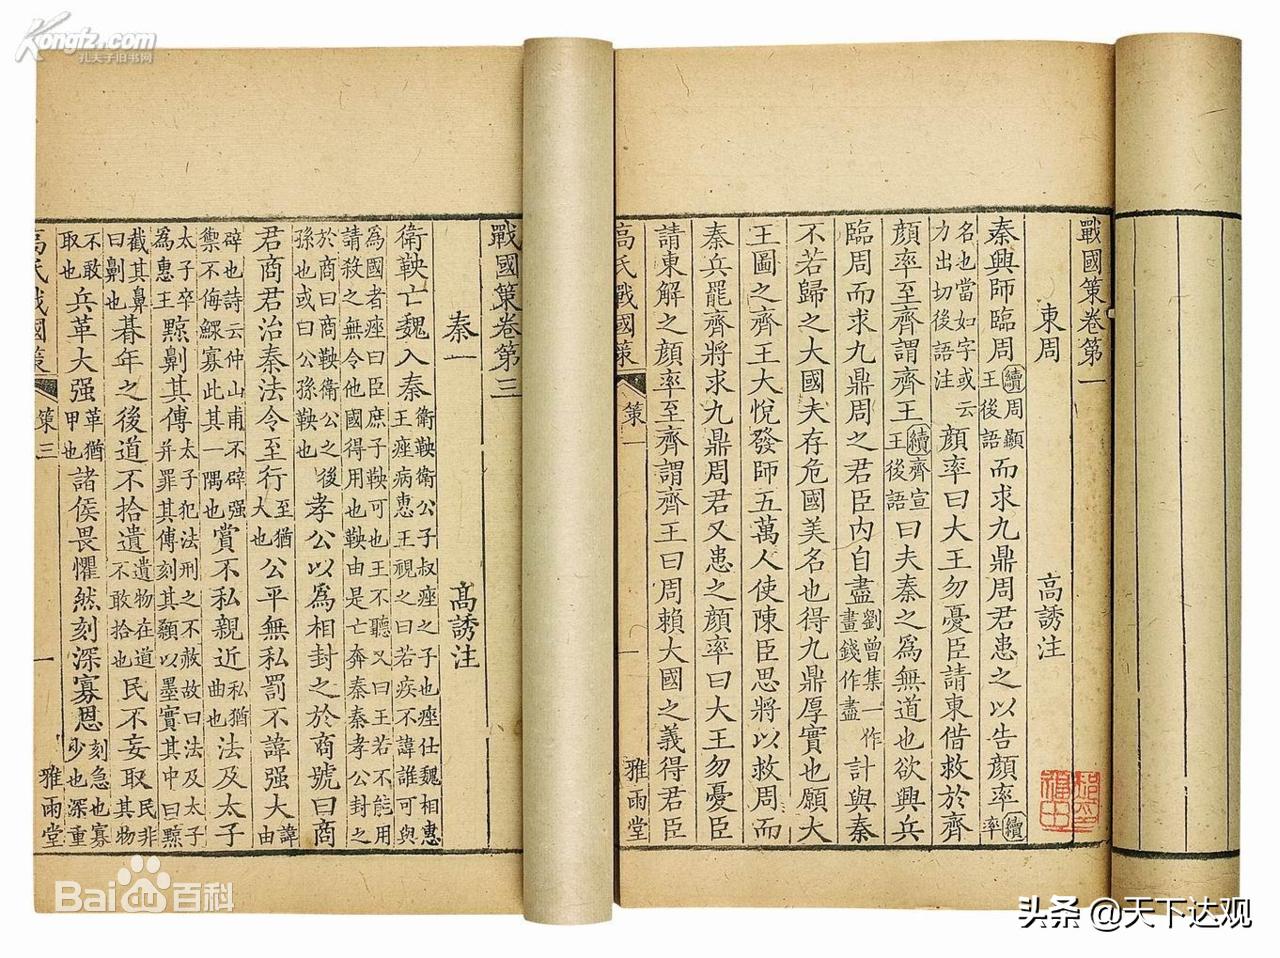 Kongfz.com
孔夫子旧书网
戰國策卷第一
東周
高誘注
秦興師臨周續周顯王後語而求九鼎周君患之以告顔率續率
名也當如字或云力出切後語注顔率曰大王勿憂臣請東借救於齊
顔率至齊謂齊王續齊宣王後語曰夫秦之爲無道也欲興兵
臨周而求九鼎周之君臣內自盡劉曾集一作畫錢作盡計與秦
不若歸之大國夫存危國美名也得九鼎厚實也願大
王圖之齊王大悅發師五萬人使陳臣思將以救周而
秦兵罷齊將求九鼎周君又患之顔率曰大王勿憂臣
請東解之顔率至齊謂齊王曰周賴大國之義得君臣
高氏戰國策
策一
一
雅雨堂
戰國策卷第三
秦一
高誘注
衛鞅亡魏入秦衛鞅衛公子叔痤之子也痤仕魏相惠王痤病惠王視之曰若疾不諱誰可與
爲國者痤曰臣庶子鞅可也王不聽又曰王若不能用請殺之無令他國得用也鞅由是亡奔秦秦孝公封之
於商曰商鞅衛公之後孫也或曰公孫鞅也孝公以爲相封之於商號曰商
君商君治秦法令至行至猶大也公平無私罰不諱强大諱由
辟也詩云仲山甫不辟强禦不侮鰥寡此其一隅也賞不私親近私猶曲也法及太子
太子犯法刑之不赦故曰法及太子太子卒爲惠王黥劓其傅并罪其傅刻其顙以墨實其中曰黥
截其鼻曰劓也朞年之後道不拾遺遺物在道不敢拾也民不妄取民非其物
不敢取也兵革大强革猶甲也諸侯畏懼然刻深寡恩刻急也寡少也深重
高氏戰國策
策三
一
雅雨堂
Bai百科
头条 @天下达观